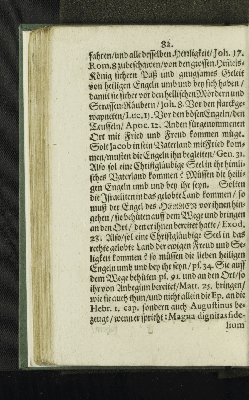 82.
fahren/und alle desselben Herrligkeit/Joh. 17.
Rom. 8 zubeschawen/von den grossen Himels-
König sichern Paß und gnugsames Geleit
von heiligen Engeln umb und bey sich haben/
damit sie sicher vor den hellischen Mördern und
Strassen-Räubern/Joh. 8. Vor den starckge-
wapneten/Luc. 11. Vor den bösen Engeln/den
Teuffeln/Apoc. 12. An den fürgenommenen
Ort mit Fried und Freud kommen müge.
Solt Jacob in sein Vaterland mit Fried kom-
men/musten die Engeln ihn begleiten/Gen. 31.
Also sol eine Christgläubige Seel in ihr himli-
sches Vaterland kommen? Müssen die heili-
gen Engeln umb und bey ihr seyn. Solten
die Israeliten in das gelobte Land kommen/so
muß der Engel des HERREN vor ihnen hin-
gehen/sie behüten auff dem Wege und bringen
an den Ort/den er ihnen bereitet hatte/Exod.
23. Also/sol eine Christgläubige Seel in das
rechte gelobte Land der ewigen Freud und Se-
ligkeit kommen? so müssen die lieben heiligen
Engeln umb und bey ihr seyn/ps. 34. Sie auff
dem Wege behüten ps. 91. und an den Ort/so
ihr von Anbegin bereitet/Matt. 25. bringen/
wie sie auch thun/und nicht allein die Ep. an die
Hebr. 1. cap. sondern auch Augustinus be-
zeuget/wenn er spricht: Magna dignitas fide-
lium